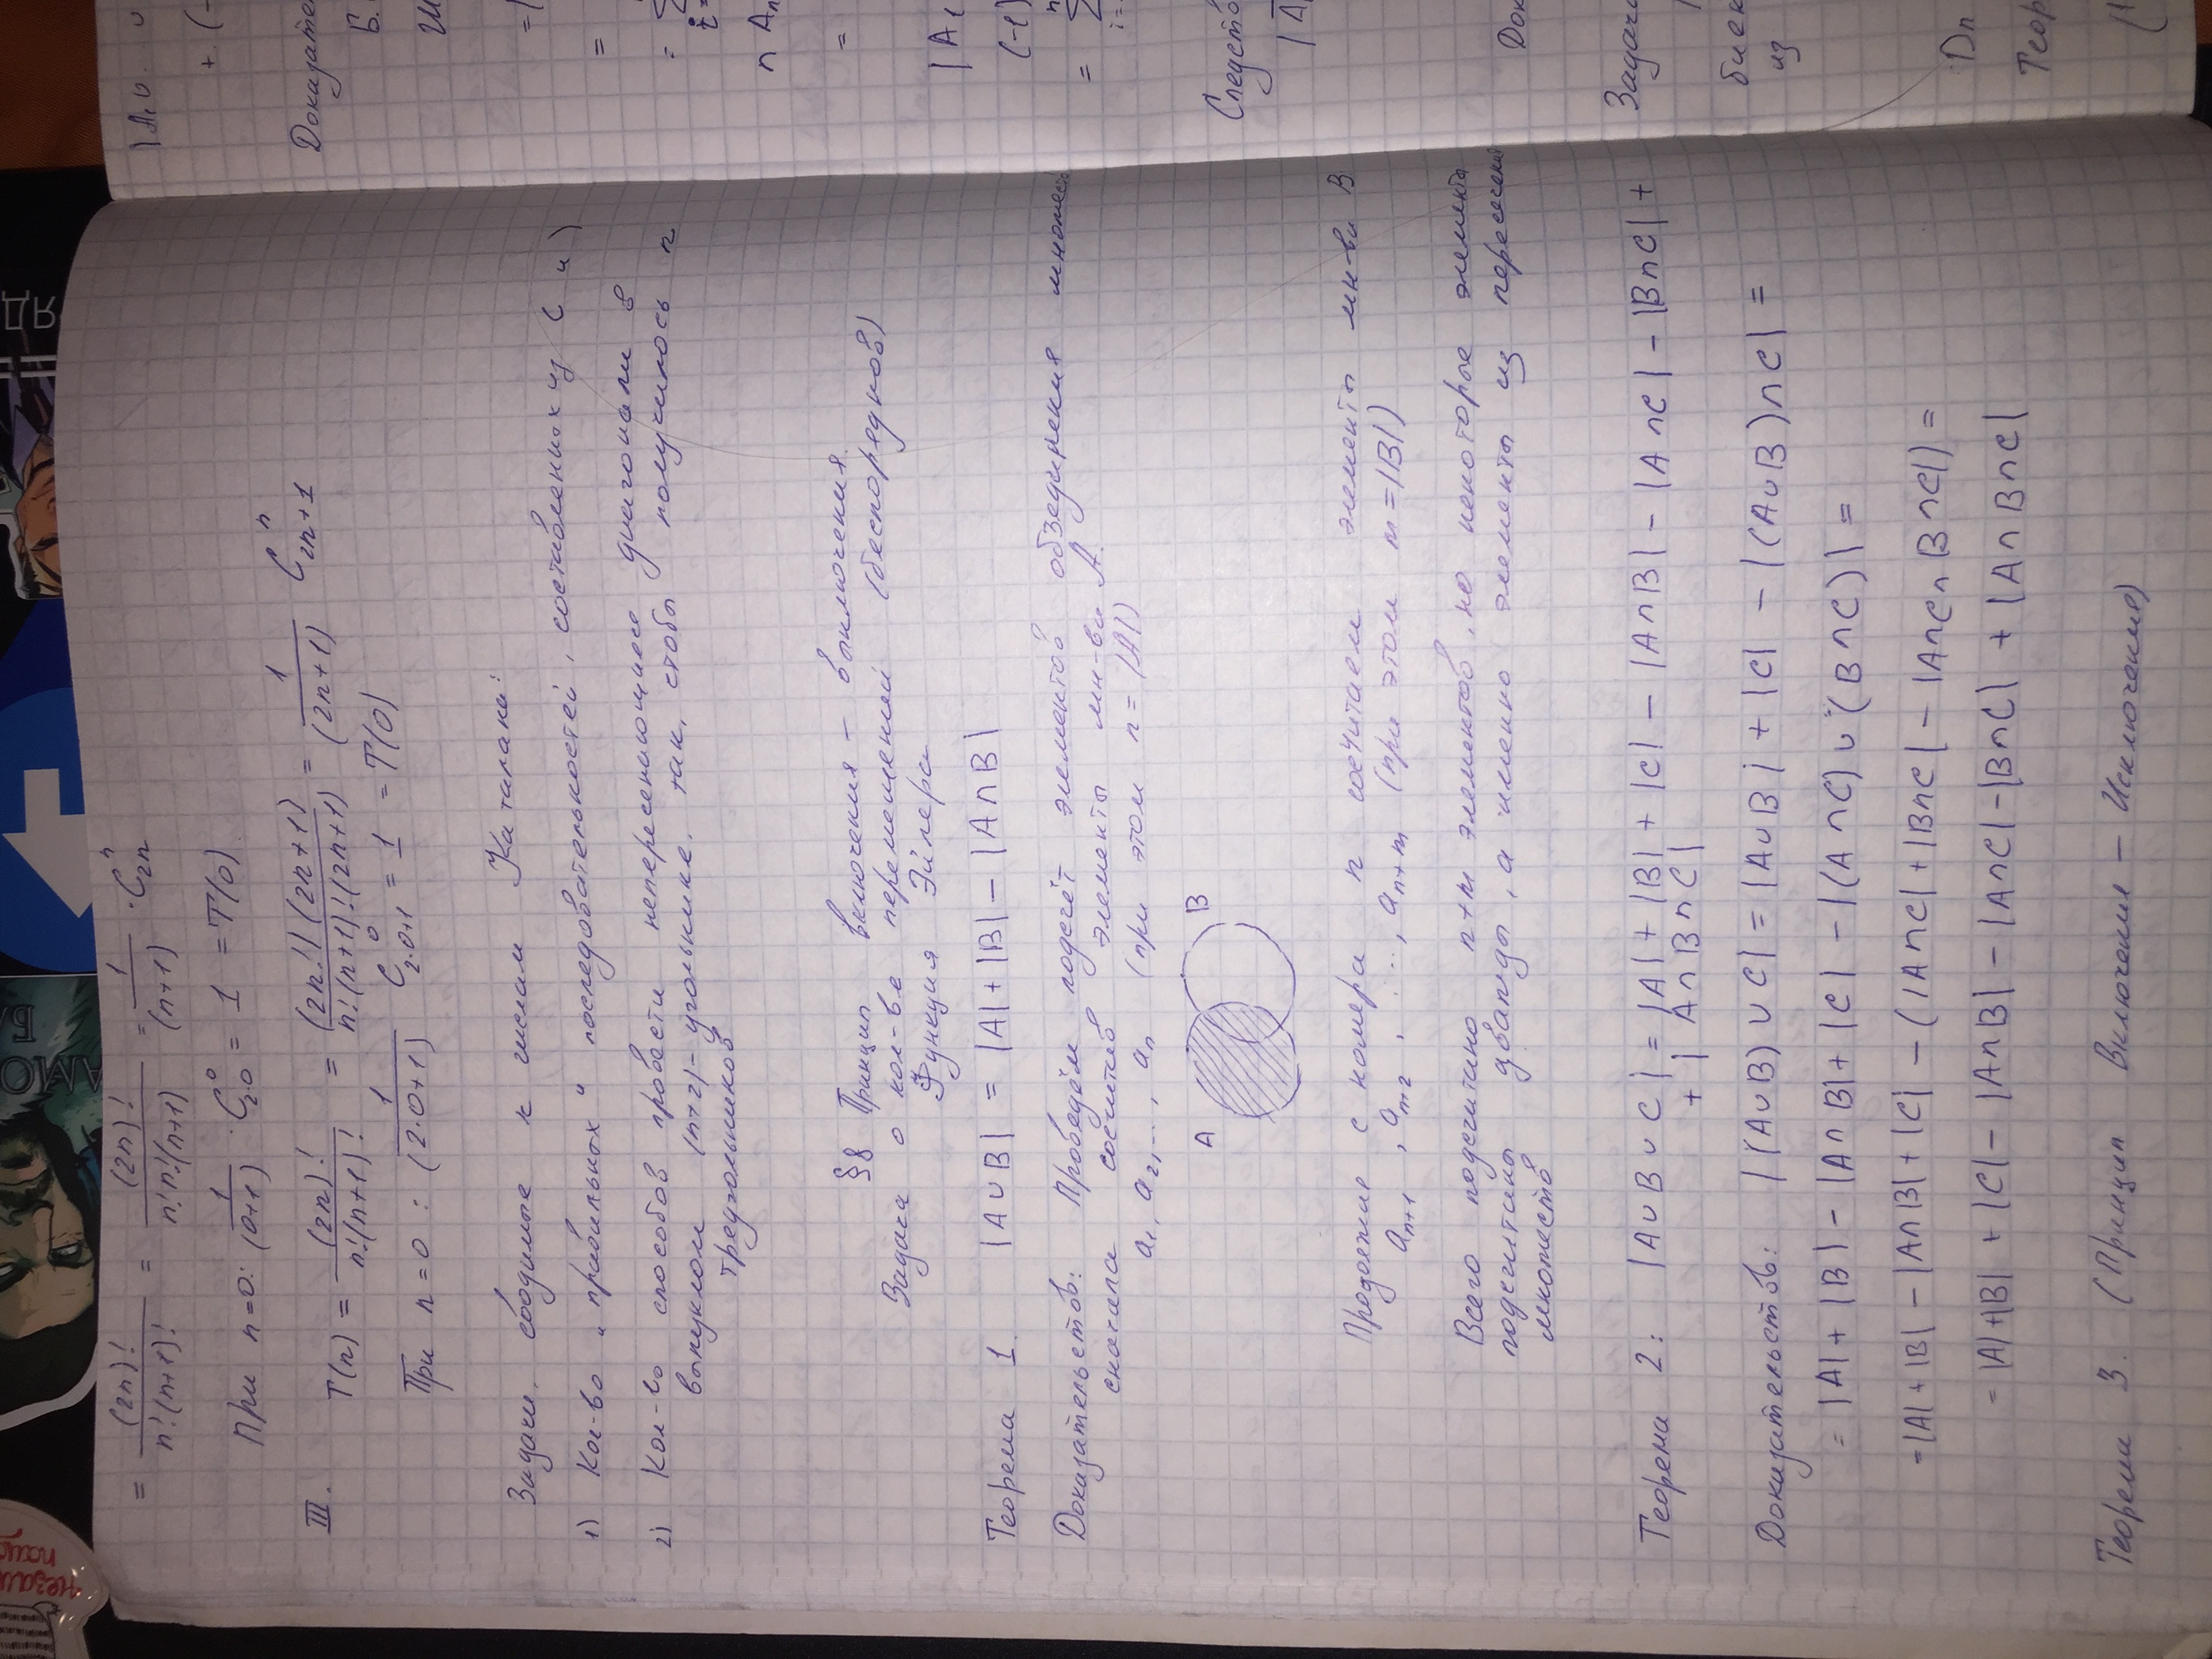 = (2n)! / n!(n+1)! = (2n)! / n!n!(n+1) = 1 / (n+1) · C_{2n}^{n}
При n=0: 1 / (0+1) · C_{2·0}^{0} = 1 = T(0)
III. T(n) = (2n)! / n!(n+1)! = (2n!)(2n+1) / n!(n+1)!(2n+1) = 1 / (2n+1) C_{2n+1}^{n}
При n=0 : 1 / (2·0+1) C_{2·0+1}^{0} = 1 = T(0)
Задачи, сводимые к числам Каталана:
1) Кол-во „правильных“ последовательностей, составленных из ( и )
2) Кол-во способов провести непересекающиеся диагонали в
выпуклом (n+2)-угольнике, так, чтобы получилось n
треугольников
§8 Принцип включения – выключения.
Задача о кол-ве перемещений (беспорядков)
Функция Эйлера
Теорема 1. |A∪B| = |A|+|B| – |A∩B|
Доказательство: Проведём подсчёт элементов объединения множеств
сначала сосчитав элементы мн-ва A.
a₁, a₂, ..., aₙ (при этом n = |A|)
A B
Продолжие с номера n сосчитаем элементы мн-ва B
a_{n+1}, a_{n+2}, ..., a_{n+m} (при этом m=|B|)
Всего подсчитано n+m элементов, но некоторые элементы
подсчитаны дважды, а именно элементы из пересечения
множеств
Теорема 2: |A∪B∪C| = |A| + |B| + |C| – |A∩B| – |A∩C| – |B∩C| +
+ |A∩B∩C|
Доказательство: |(A∪B)∪C| = |A∪B| + |C| – |(A∪B)∩C| =
= |A| + |B| – |A∩B| + |C| – |(A∩C)∪(B∩C)| =
= |A| + |B| – |A∩B| + |C| – (|A∩C| + |B∩C| – |A∩C∩B∩C|) =
= |A|+|B| + |C| – |A∩B| – |A∩C| – |B∩C| + |A∩B∩C|
Теорема 3. (Принцип Включения – Исключения)